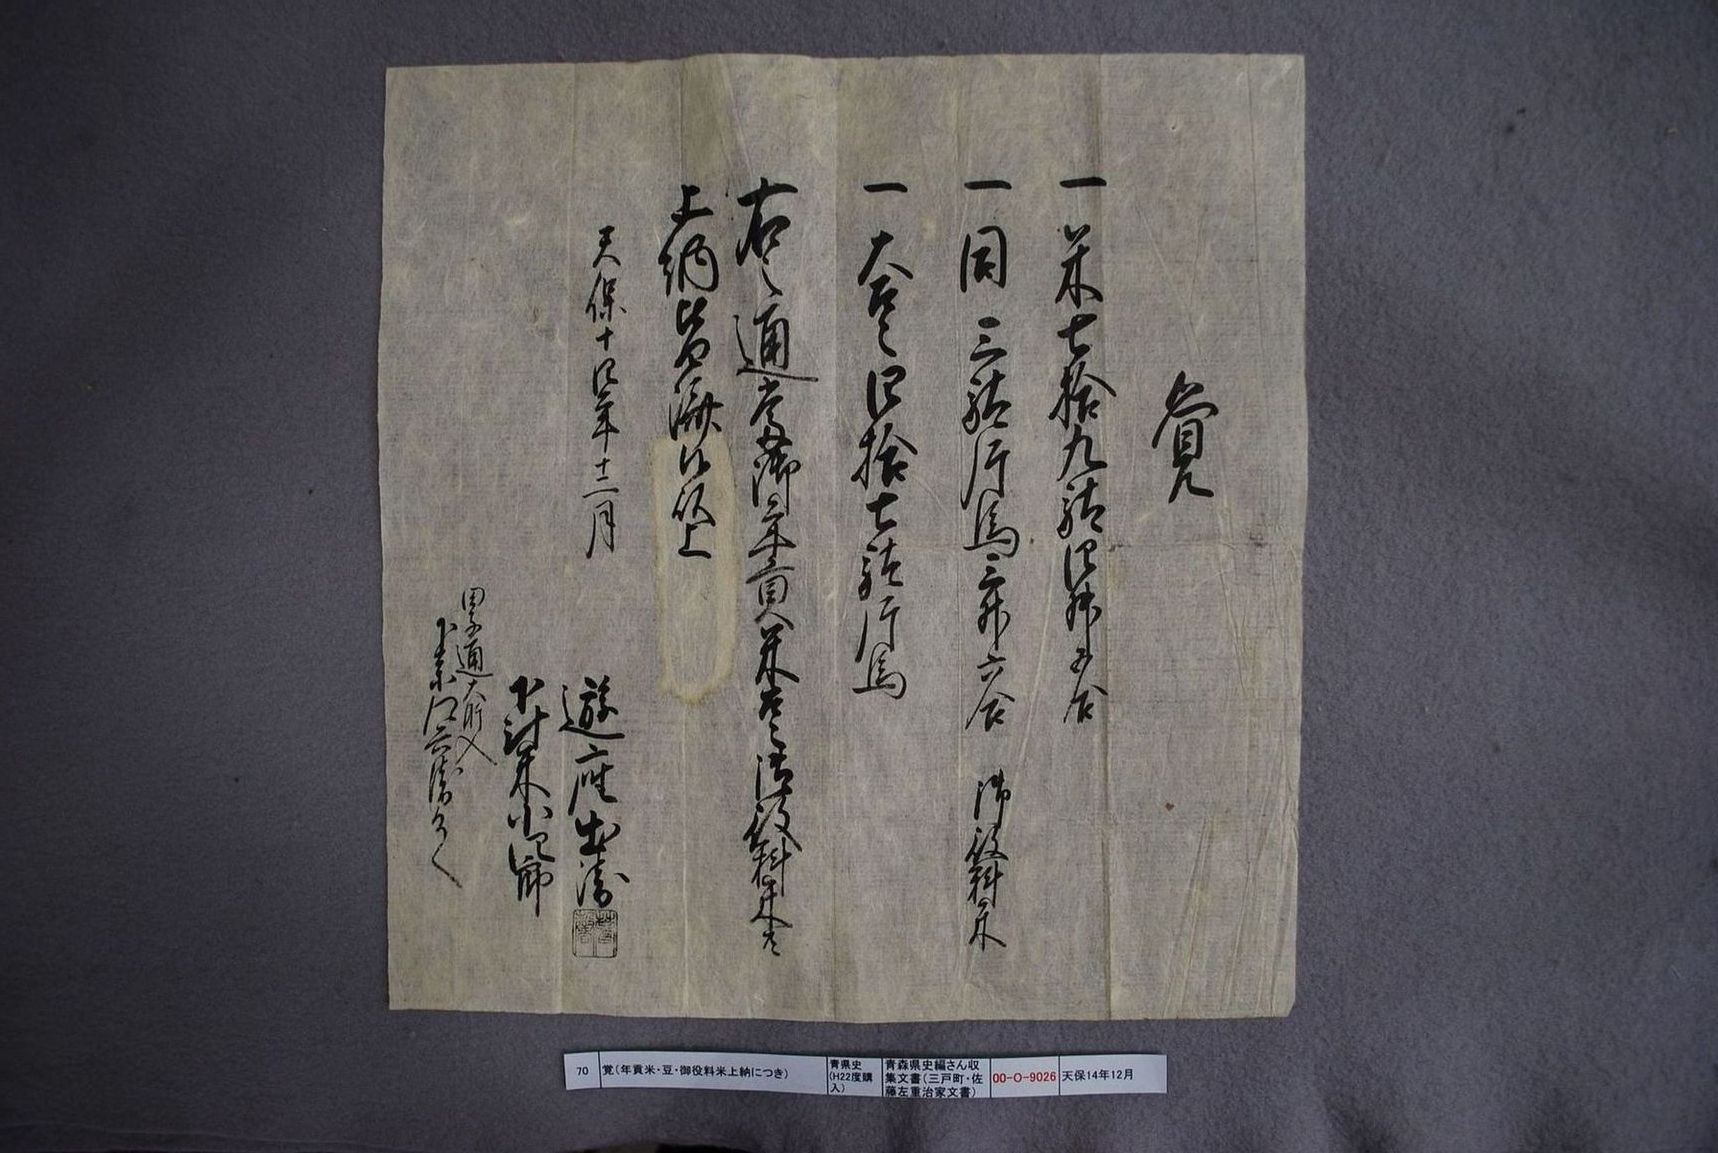 覚
一 米七拾九駄四升五合
一 同三駄片馬三升六合 御役料米
一 大豆四拾七駄片馬
右之通当御年貢米大豆御役料米共
上納皆済候以上
天保十四年十二月
遊座出清
下村来小四郎
通大所
70
覚(年貢米・豆・御役料米上納につき)
青県史
(H22度購
入)
青森県史編さん収
集文書(三戸町・佐
藤左重治家文書)
00-O-9026
天保14年12月